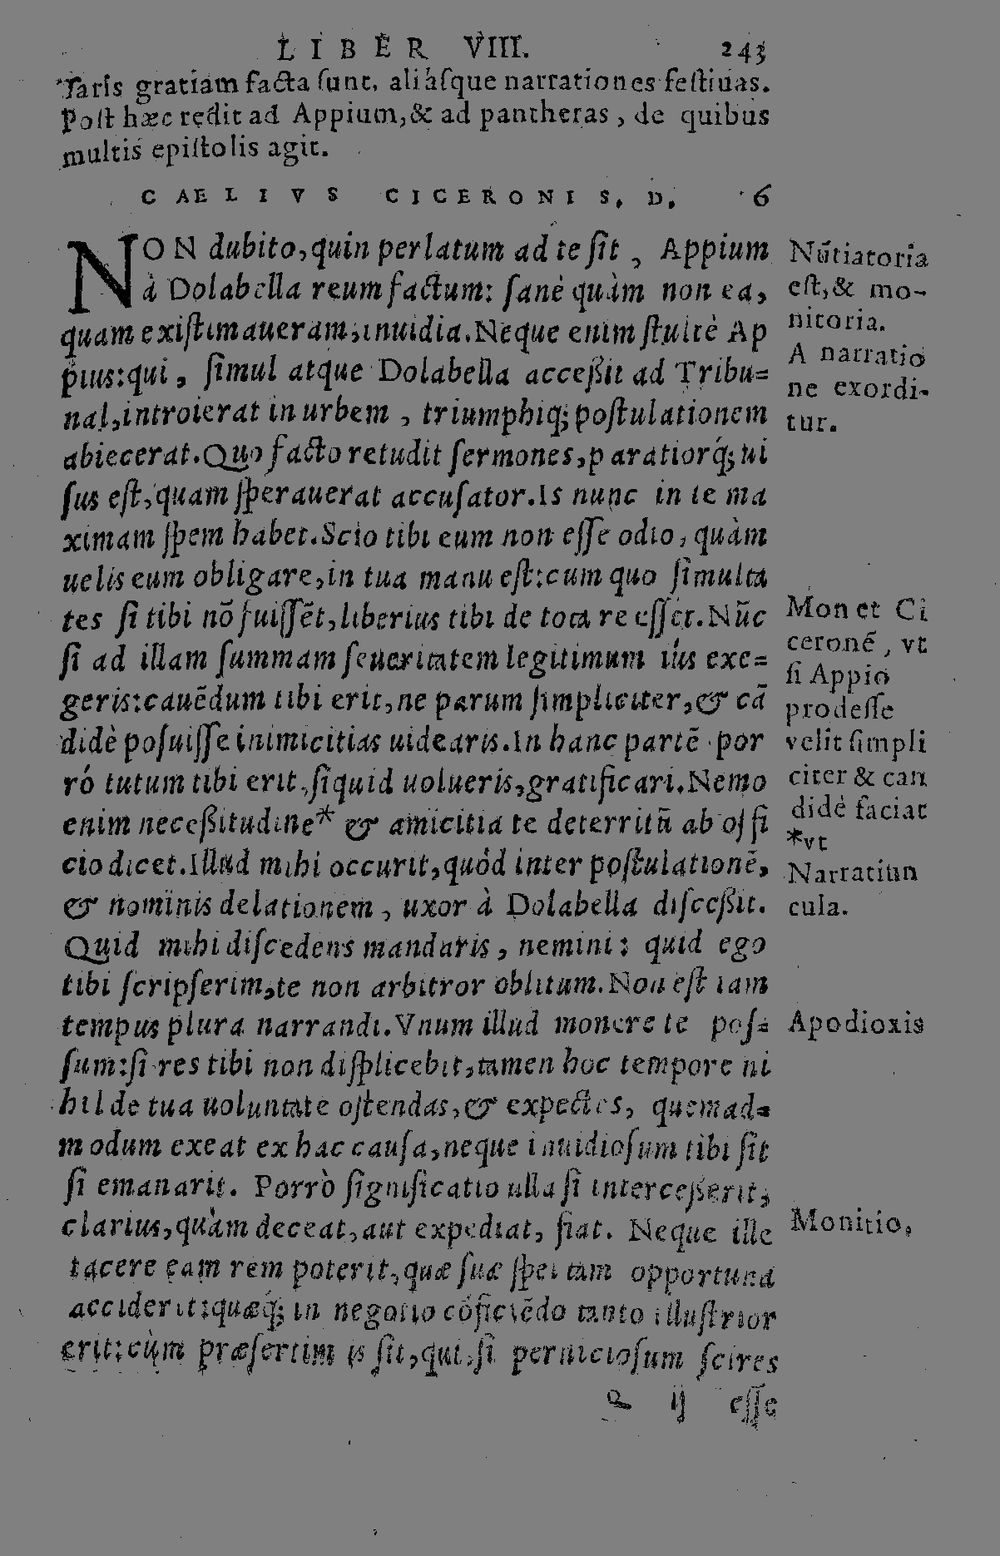 LIBER VIII. 243
saris gratiam facta sunt, aliásque narrationes festiuas.
Post hæc redit ad Appium, & ad pantheras, de quibus
multis epistolis agit.
CAELIVS CICERONI S. D. 6
NON dubito, quin perlatum ad te sit, Appium
à Dolabella reum factum: sanè quàm non ea,
quam existimaueram, inuidia. Neque enim stultè Ap
pius: qui, simul atque Dolabella acceßit ad Tribu=
nal, introierat in urbem, triumphiq; postulationem
abiecerat. Quo facto retudit sermones, paratiorq́; ui
sus est, quam sperauerat accusator. Is nunc in te ma
ximam spem habet. Scio tibi eum non esse odio, quàm
uelis eum obligare, in tua manu est: cum quo simulta
tes si tibi nō fuissēt, liberius tibi de tota re esset. Nūc
si ad illam summam seueritatem legitimum ius exe=
geris: cauēdum tibi erit, ne parum simpliciter, & cā
didè posuisse inimicitias uidearis. In hanc partē por
ró tutum tibi erit, siquid uolueris, gratificari. Nemo
enim neceßitudine* & amicitia te deterritū ab offi
cio dicet. Illud mihi occurit, quòd inter postulationē,
& nominis delationem, uxor à Dolabella disceßit.
Quid mihi discedens mandaris, nemini: quid ego
tibi scripserim, te non arbitror oblitum. Non est iam
tempus plura narrandi. Vnum illud monere te pos=
sum: si res tibi non displicebit, tamen hoc tempore ni
hil de tua uoluntate ostendas, & expectes, quemad=
modum exeat ex hac causa, neque inuidiosum tibi sit
si emanarit. Porrò significatio ulla si interceßerit,
clarius, quàm deceat, aut expediat, fiat. Neque ille
tacere eam rem poterit, quæ suæ spei tam opportuna
acciderit: quæq́; in negotio cōficiēdo tanto illustrior
erit: cùm præsertim is sit, qui, si perniciosum scires
Q ij esse
Nūtiatoria
est, & mo-
nitoria.
A narratio
ne exordi-
tur.
Monet Ci
ceronē, vt
si Appio
prodesse
velit simpli
citer & can
didè faciat
*vt
Narratiun
cula.
Apodioxis
Monitio,